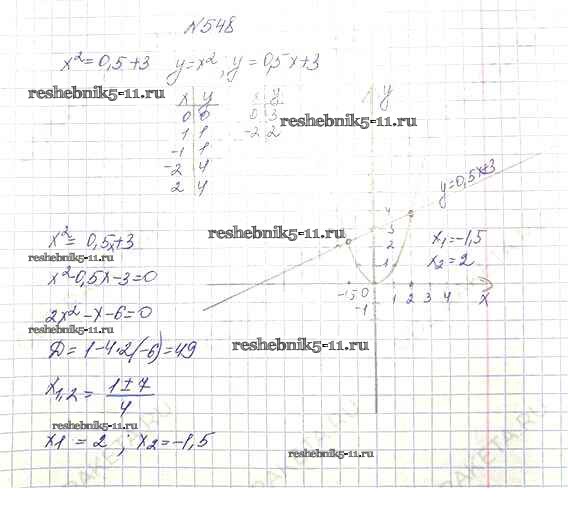 №548
x²=0,5+3 y=x², y=0,5x+3
reshebnik5-11.ru
x y x y
0 0 0 3
1 1 -2 2
-1 1
-2 4
2 4
reshebnik5-11.ru
y
y=0,5x+3
4
3
2
1
-1,5 0 1 2 3 4 x
-1
x₁=-1,5
x₂=2
reshebnik5-11.ru
x²=0,5x+3
reshebnik5-11.ru
x²-0,5x-3=0
2x²-x-6=0
reshebnik5-11.ru
D=1-4·2(-6)=49
reshebnik5-11.ru
x₁,₂= 1±7
4
reshebnik5-11.ru
x₁=2; x₂=-1,5
reshebnik5-11.ru